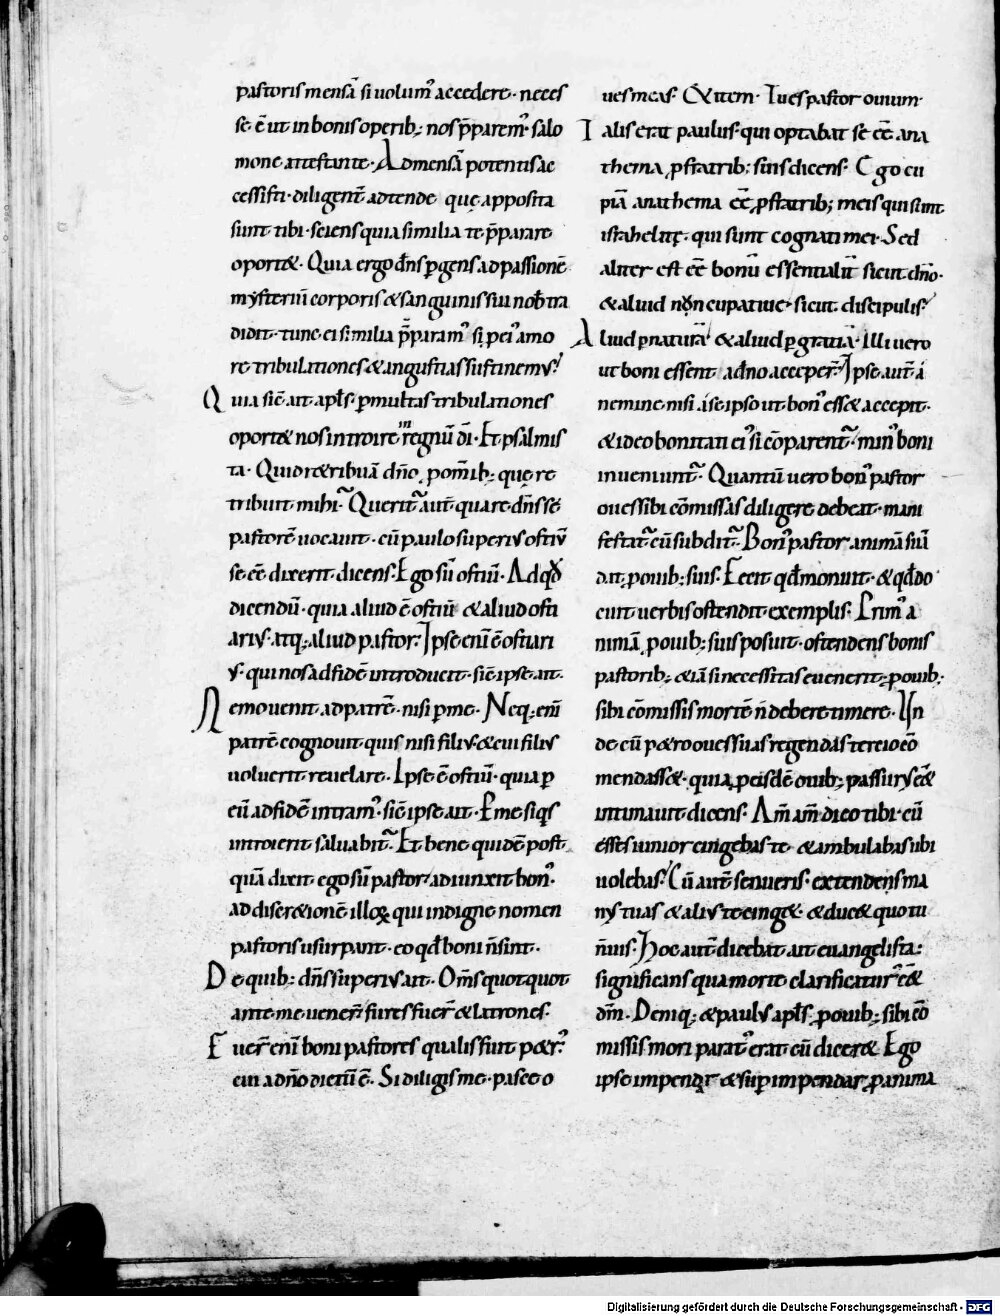 pastoris mensā si uolum᷒ accedere · neces
se ē ut in bonis operib; nos p̄parem᷒ · salo
mone attestante · Ad mensā potentis ac
cessisti · diligent̄ adtende que apposita
sunt tibi · sciens quia similia te p̄parare
oport& · Quia ergo dn̄s p̱gens ad passionē
mysteriū corporis & sanguinis sui nob̄ tra
didit · tunc ei similia p̄param᷒ si p̱ ei᷒ amo
re tribulationes & angustias sustinem᷒
Quia sic̄ ait apl̄s · p̱ multas tribulationes
oport& nos introire in regnū dī · Et psalmis
ta · Quid r&ribuā dn̄o p̱ om̄ib; que re
tribuit mihi · Querit᷒ aut̄ quare dn̄s se
pastorē uocauit · cū paulo superi᷒ ostiū
se eē dixerit dicens · Ego sū ostiū · Ad qd̄
dicendū · quia aliud ē ostiū & aliud osti
ari᷒ · atq; aliud pastor · Ipse enī ē ostiari
᷒ · qui nos ad fidē introducit · sic̄ ipse ait ·
Nemo uenit ad patrē · nisi p̱ me · Neq; enī
patrē cognouit quis nisi fili᷒ · & cui fili᷒
uoluerit reuelare · Ipse ē ostiū · quia p̱
eū ad fidē intram᷒ · sic̄ ipse ait · P̱ me siqs
introierit saluabit᷒ · Et bene quidē post
quā dixit ego sū pastor adiunxit bon᷒ ·
ad discr&ionē illoꝝ qui indigne nomen
pastoris usurpant · eo qd̄ boni n̄ sint ·
De quib; dn̄s superi᷒ ait · Om̄s quotquot
ante me uener̄ fures fuer̄ & latrones ·
Fuer̄ enī boni pastores qualis fuit p&r᷒
cui a dn̄o dictū ē · Si diligis me · pasce o
ues meas · & item · Tu es pastor ouium ·
Talis erat paulus · qui optabat se eē ana
thema p̱ fratrib; suis dicens · Ego cu
piā anathema eē p̱ fratrib; meis qui sunt
israhelitę · qui sunt cognati mei · Sed
aliter est eē bonū essentialit̄ sicut dn̄o ·
& aliud nūncupatiue · sicut discipulis ·
Aliud p̱ naturā & aliud p̱ gratiā · Illi uero
ut boni essent a dn̄o acceper̄ · Ipse aut̄ á
nemine nisi á se ipso ut bon᷒ ess& accepit ·
& ideo bonitati ei᷒ si cōparent᷒ · min᷒ boni
inueniunt᷒ · Quantū uero bon᷒ pastor
oues sibi cōmissas diligere debeat · mani
festat᷒ cū subdit᷒ · Bon᷒ pastor animā suā
dat p̱ ouib; suis · Fecit qd̄ monuit · & qd̄ do
cuit uerbis ostendit exemplis · Prim᷒ a
nimā p̱ ouib; suis posuit · ostendens bonis
pastorib; & iā si necessitas euenerit p̱ ouib;
sibi cōmissis mortē n̄ debere timere · Un
de cū p&ro oues suas regendas tercio cō
mendass& · quia p̱ eisdē ouib; passur᷒ eēt
intimauit dicens · Am̄ am̄ dico tibi cū
esses iunior cingebas te & ambulabas ubi
uolebas · Cū aut̄ senueris · extendens ma
n᷒ tuas & ali᷒ te cing& · & duc& quo tu
n̄ uis · Hoc aut̄ dicebat ait euangelista ·
significans qua morte clarificatur᷒ eēt
dm̄ · Deniq; & paulus apl̄s p̱ ouib; sibi cō
missis mori parat᷒ erat cū dicer& Ego
ipse impendar & sup̱impendar p̱ anima
Digitalisierung gefördert durch die Deutsche Forschungsgemeinschaft - DFG